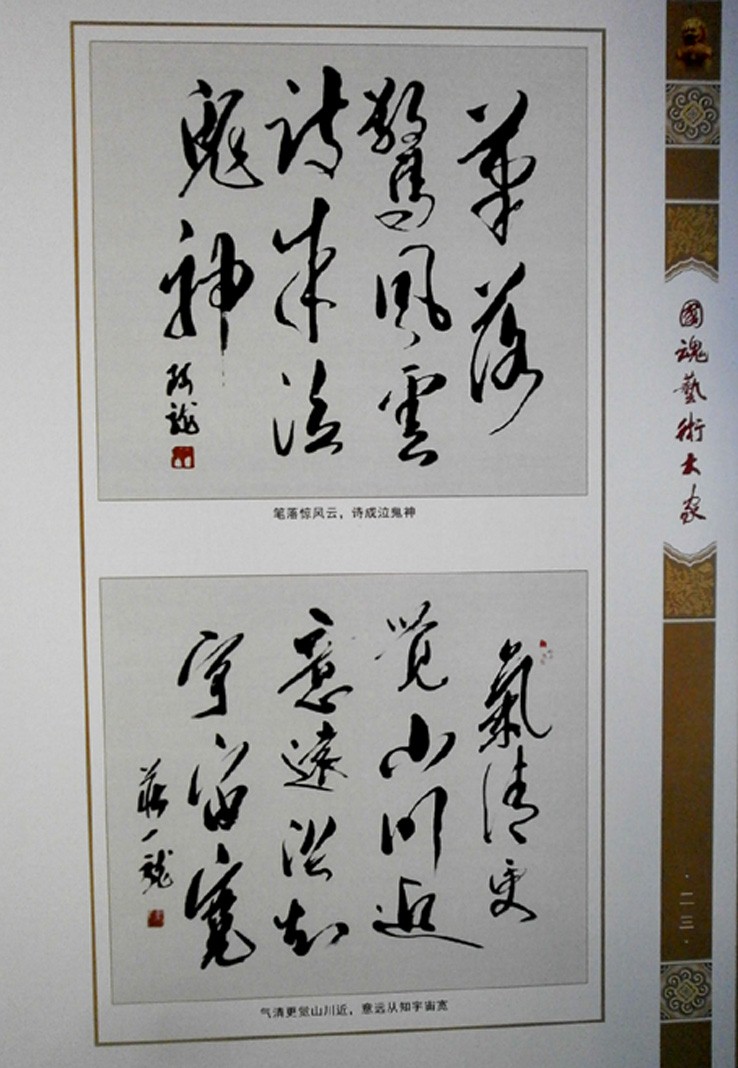 筆落
驚風雲
詩成泣
鬼神
笔落惊风云，诗成泣鬼神
氣清更
覺山川近
意遠從知
宇宙寬
莊一龍
气清更觉山川近，意远从知宇宙宽
國魂藝術大家
·二三·